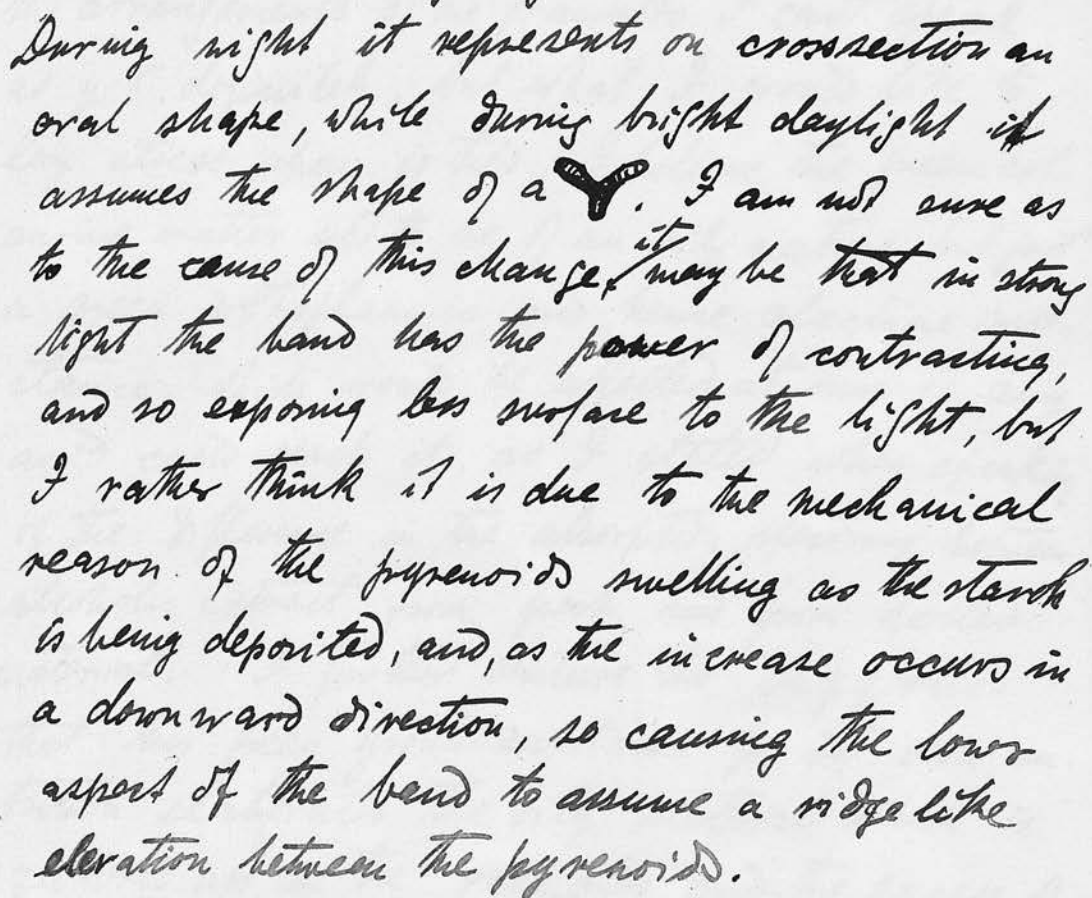 During night it represents on crosssection an
oval shape, while during bright daylight it
assumes the shape of a Y. I am not sure as
to the cause of this change, it may be that in strong
light the band has the power of contrasting,
and so exposing less surface to the light, but
I rather think it is due to the mechanical
reason of the pyrenoids swelling as the starch
is being deposited, and, as the increase occurs in
a downward direction, so causing the lower
aspect of the band to assume a ridge like
elevation between the pyrenoids.